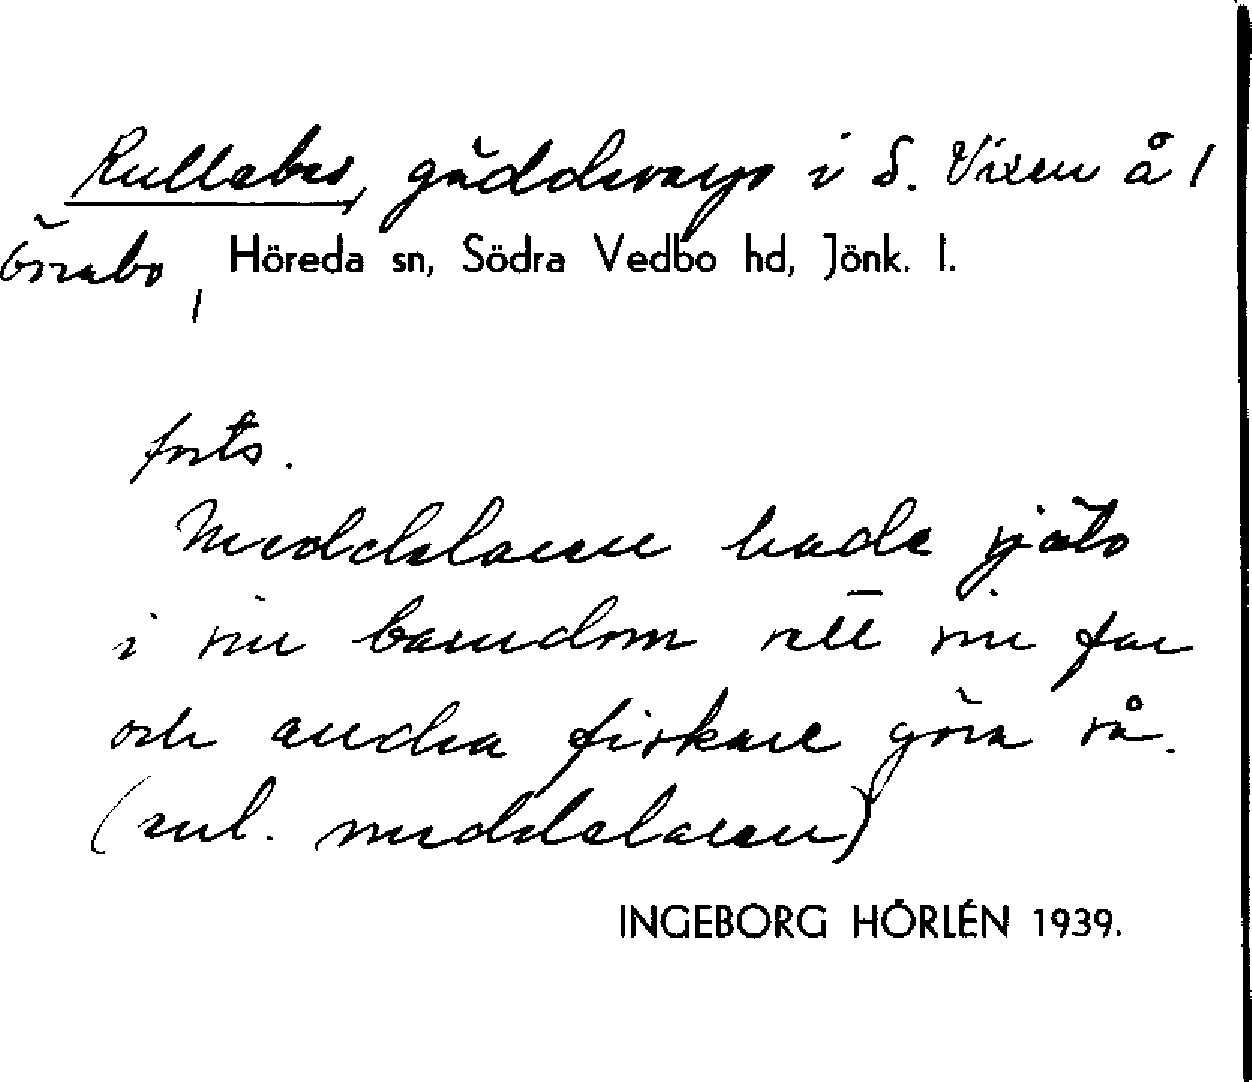 Kullabes, gäddvarp i S. Vixen å 1
Örnabo 1, Höreda sn, Södra Vedbo hd, Jönk. l.
forts.
Meddelaren hade själv
i sin barndom sett sin far
och andra fiskare göra så.
(enl. meddelaren)
INGEBORG HÖRLÉN 1939.